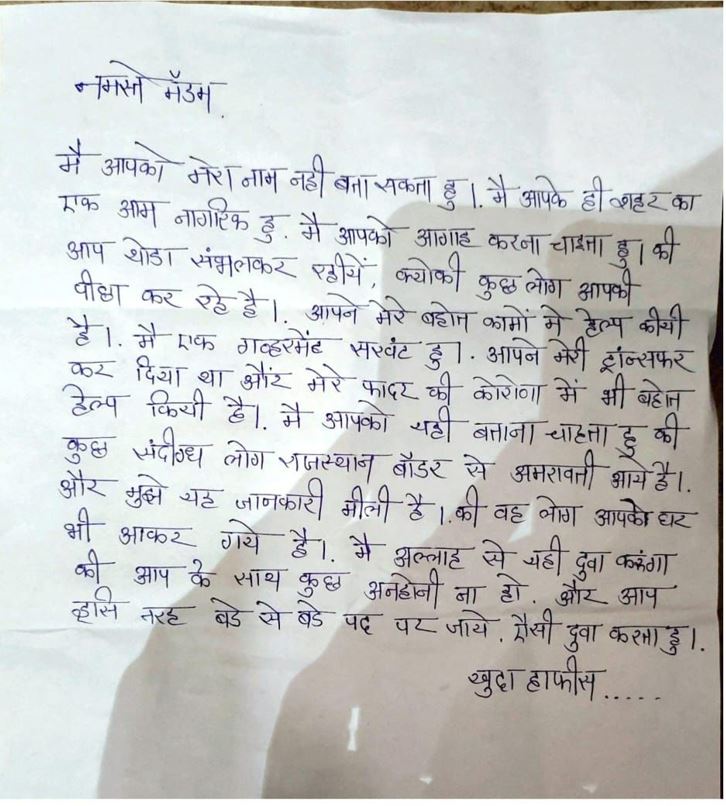 नमस्ते मॅडम.
मै आपको मेरा नाम नही बता सकता हु।. मै आपके ही शहर का
एक आम नागरिक हु. मै आपको आगाह करना चाहता हु। की
आप थोडा संभलकर रहीयें, क्योकी कुछ लोग आपकी
पीछा कर रहे है।. आपने मेरे बहोत कामों मे हेल्प कीयी
है।. मै एक गव्हरमेंट सरवंट हु।. आपने मेरी ट्रान्सफर
कर दिया था और मेरे फादर की कोरोना में भी बहोत
हेल्प कियी है।. मै आपको यही बताना चाहता हु की
कुछ संदीग्ध लोग राजस्थान बॉडर से अमरावती आये है।.
और मुझे यह जानकारी मीली है।.की वह लोग आपके घर
भी आकर गये है।. मै अल्लाह से यही दुवा करुंगा
की आप के साथ कुछ अनहोनी ना हो. और आप
इसि तरह बडे से बडे पद पर जाये. ऐसी दुवा करता हु।.
खुदा हाफीस.....